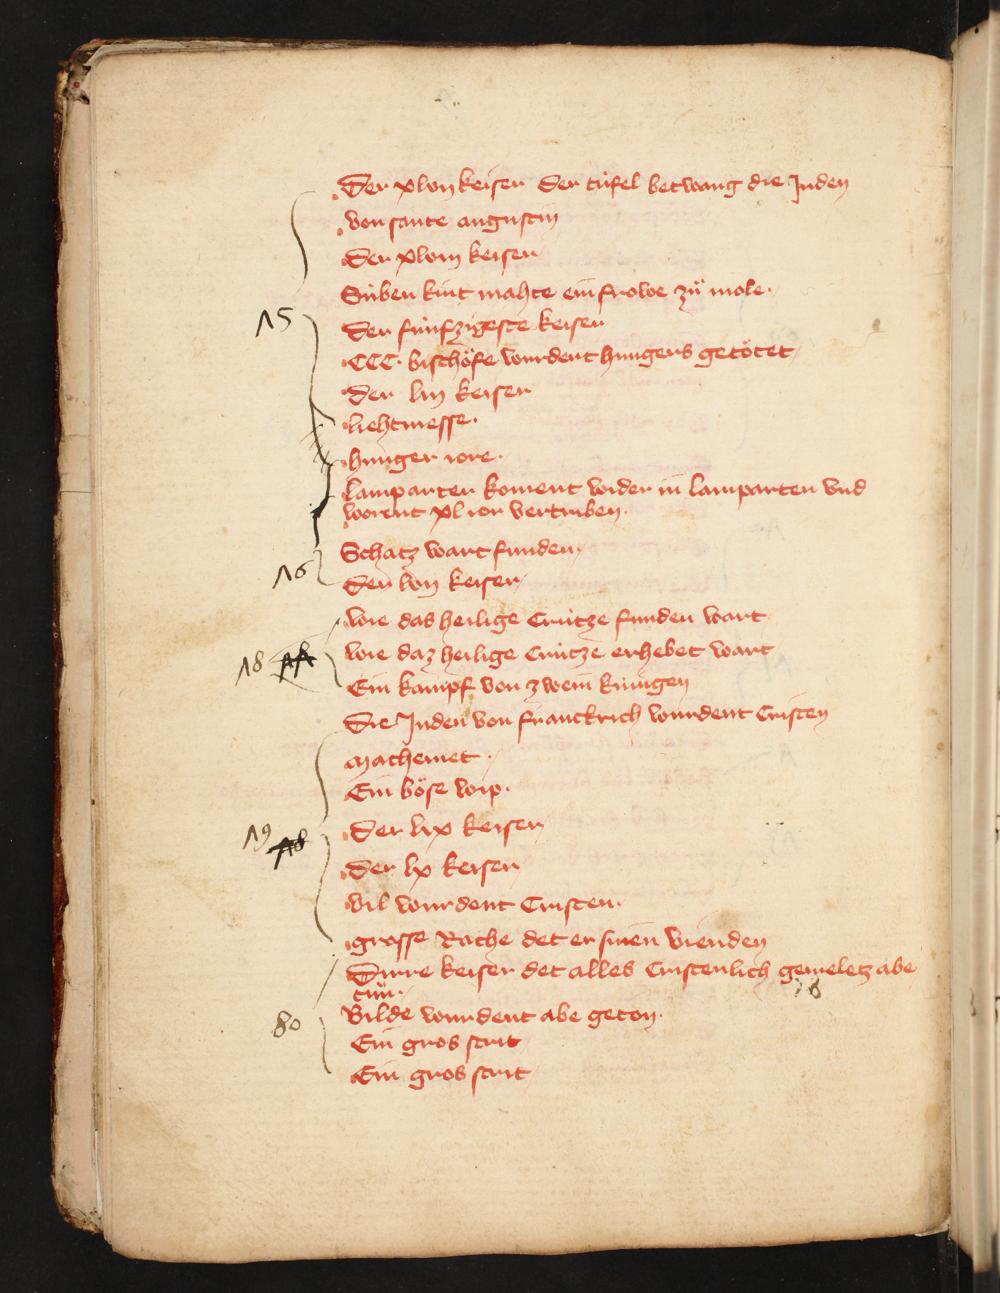 Der xlvij keiser Der tüfel betwang die Juden
von sante augustin
der xlviij keiser
Siben kint mahte ein frowe zü mole.
15 der fünfzigeste keiser
CCC. bischöfe wurdent hungers getötet
der liij keiser
liehtmesse.
hunger iore.
lamparten koment wider in lamparten und
worent xl ior vertriben.
Schatz wart funden
16 der lvij keiser
wie das heilige Crütze funden wart
18 wie daz heilige Crütze erhebet wart
Ein kampf von zwein künigen
Die Juden von franckrich wurdent Cristen
Machemet.
Ein böse wip.
19 18 der lix keiser
der lx keiser
vil wurdent Cristen.
grosse Rache det er sinen vienden
Dirre keiser det alles Cristenlich gemeletz abe
tün.
80 Bilde wurdent abe geton.
Ein gros strit
Ein gros strit